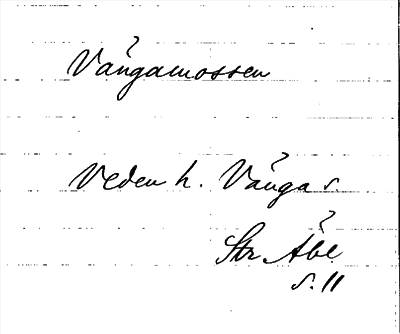 Vångamossen
Veden h. Vånga s.
Str Åbl
s. 11